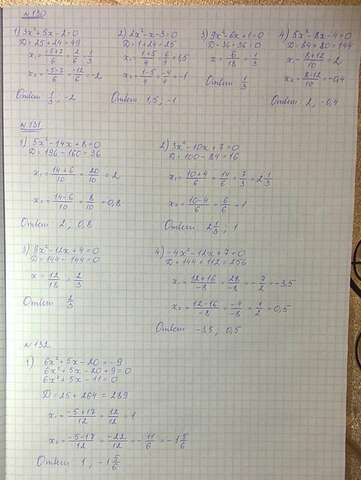 № 130
1) 3x²+5x-2=0
D=25+24=49
x₁=(-5+7)/6=2/6=1/3
x₂=(-5-7)/6=-12/6=-2
Ответ 1/3, -2
2) 2x²-x-3=0
D=1+24=25
x₁=(1+5)/4=6/4=1,5
x₂=(1-5)/4=-4/4=-1
Ответ 1,5, -1
3) 9x²-6x+1=0
D=36-36=0
x=6/18=1/3
Ответ 1/3
4) 5x²-8x-4=0
D=64+80=144
x₁=(8+12)/10=2
x₂=(8-12)/10=-0,4
Ответ 2, -0,4
№ 131
1) 5x²-14x+8=0
D=196-160=36
x₁=(14+6)/10=20/10=2
x₂=(14-6)/10=8/10=0,8
Ответ 2, 0,8
2) 3x²-10x+7=0
D=100-84=16
x₁=(10+4)/6=14/6=7/3=2 1/3
x₂=(10-4)/6=6/6=1
Ответ 2 1/3, 1
3) 9x²-12x+4=0
D=144-144=0
x=12/18=2/3
Ответ 2/3
4) -4x²-12x+7=0
D=144+112=256
x₁=(12+16)/-8=28/-8=-7/2=-3,5
x₂=(12-16)/-8=-4/-8=1/2=0,5
Ответ -3,5, 0,5
№ 132
1) 6x²+5x-20=-9
6x²+5x-20+9=0
6x²+5x-11=0
D=25+264=289
x₁=(-5+17)/12=12/12=1
x₂=(-5-17)/12=-22/12=-11/6=-1 5/6
Ответ 1, -1 5/6